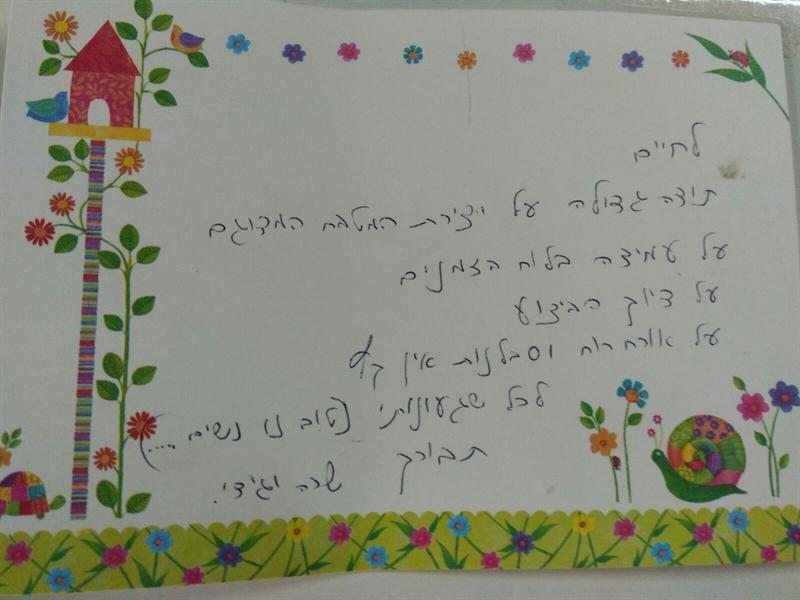 לחיים
תודה גדולה על יצירת המטבח המדוגם
על עמידה בלוח הזמנים
על דיוק הביצוע
על אורח רוח וסבלנות אין קץ
לכל שגעונותי (טוב נו נשים....)
תבורך שרה וגידי.